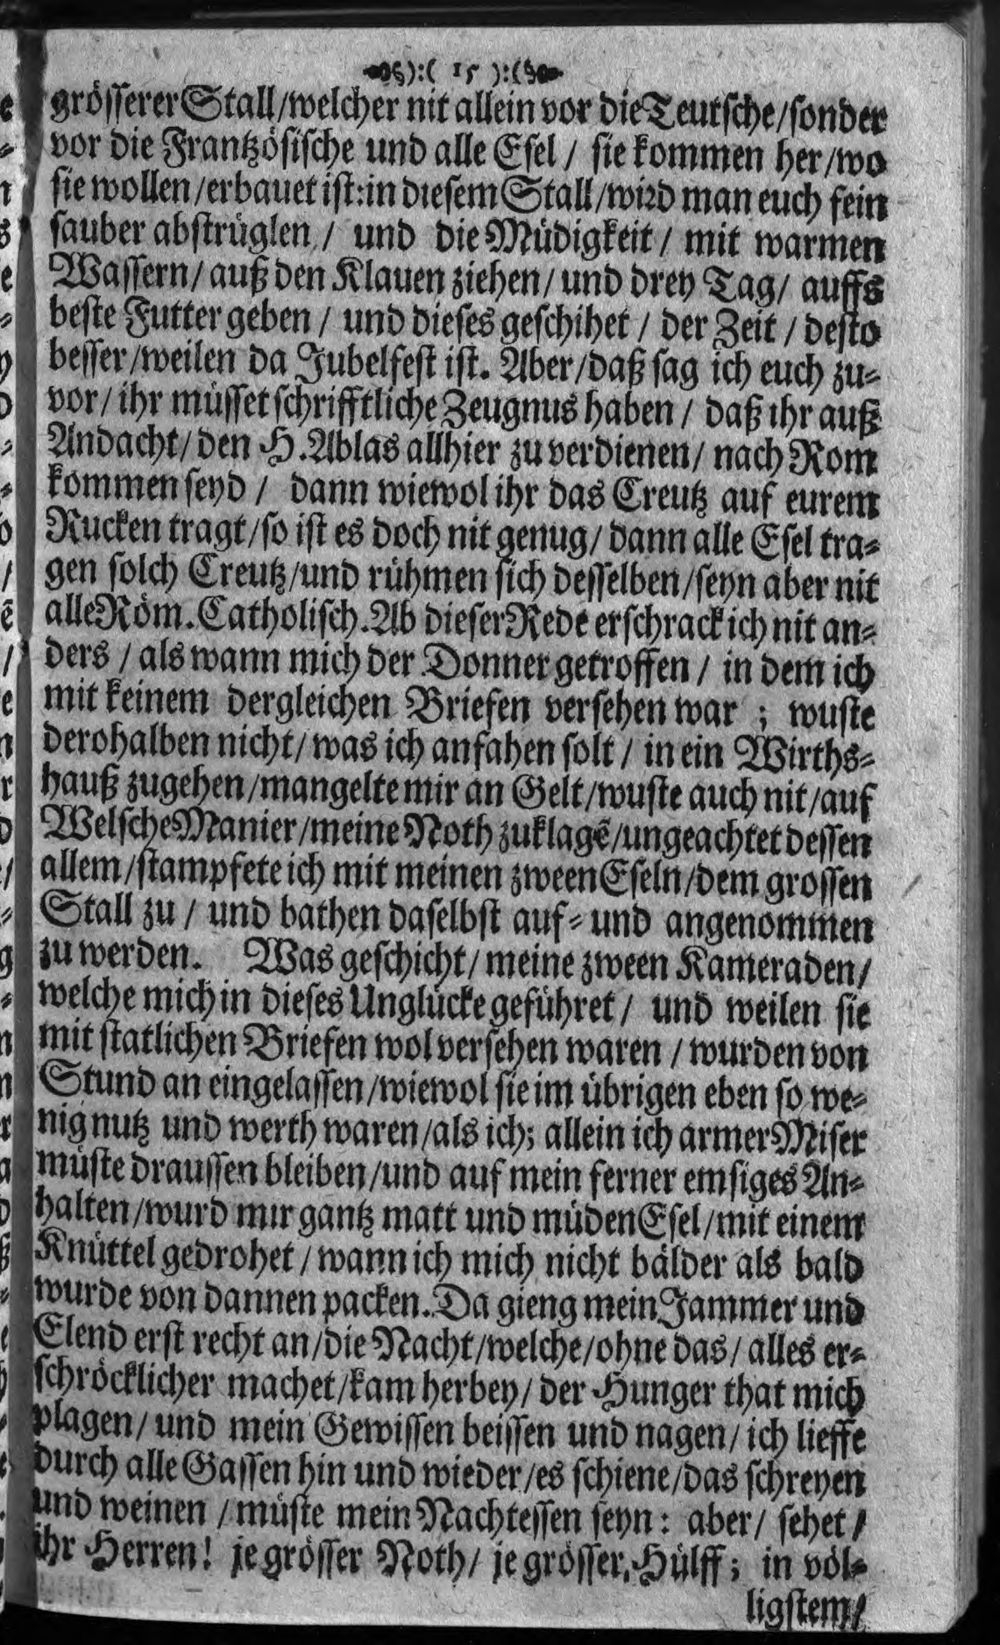 ):( 15 ):(
grösserer Stall/welcher nit allein vor die Teutsche/sonder
vor die Frantzösische und alle Esel / sie kommen her/wo
sie wollen/erbauet ist: in diesem Stall/wird man euch fein
sauber abstrüglen / und die Müdigkeit / mit warmen
Wassern/ auß den Klauen ziehen/ und drey Tag/ auffs
beste Futter geben / und dieses geschihet / der Zeit / desto
besser/weilen da Jubelfest ist. Aber/daß sag ich euch zu-
vor/ ihr müsset schrifftliche Zeugnus haben / daß ihr auß
Andacht/ den H. Ablas allhier zu verdienen/ nach Rom
kommen seyd / dann wiewol ihr das Creutz auf eurem
Rucken tragt/so ist es doch nit genug/ dann alle Esel tra-
gen solch Creutz/und rühmen sich desselben/seyn aber nit
alle Röm. Catholisch. Ab dieser Rede erschrack ich nit an-
ders / als wann mich der Donner getroffen / in dem ich
mit keinem dergleichen Briefen versehen war ; wuste
derohalben nicht/ was ich anfahen solt / in ein Wirths-
hauß zugehen/mangelte mir an Gelt/wuste auch nit/auf
Welsche Manier/meine Noth zuklagē/ungeachtet dessen
allem/stampfete ich mit meinen zween Eseln/dem grossen
Stall zu / und bathen daselbst auf- und angenommen
zu werden. Was geschicht/ meine zween Kameraden/
welche mich in dieses Unglücke geführet/ und weilen sie
mit statlichen Briefen wol versehen waren / wurden von
Stund an eingelassen/wiewol sie im übrigen eben so we-
nig nutz und werth waren/als ich; allein ich armer Miser
müste draussen bleiben/und auf mein ferner emsiges An-
halten/wurd mir gantz matt und müden Esel/mit einem
Knüttel gedrohet / wann ich mich nicht bälder als bald
wurde von dannen packen. Da gieng mein Jammer und
Elend erst recht an/die Nacht/welche/ohne das/ alles er-
schröcklicher machet/kam herbey/ der Hunger that mich
plagen/ und mein Gewissen beissen und nagen/ ich lieffe
durch alle Gassen hin und wieder/es schiene/das schreyen
und weinen / müste mein Nachtessen seyn: aber/ sehet/
ihr Herren! je grösser Noth/ je grösser Hülff; in völ-
ligstem/